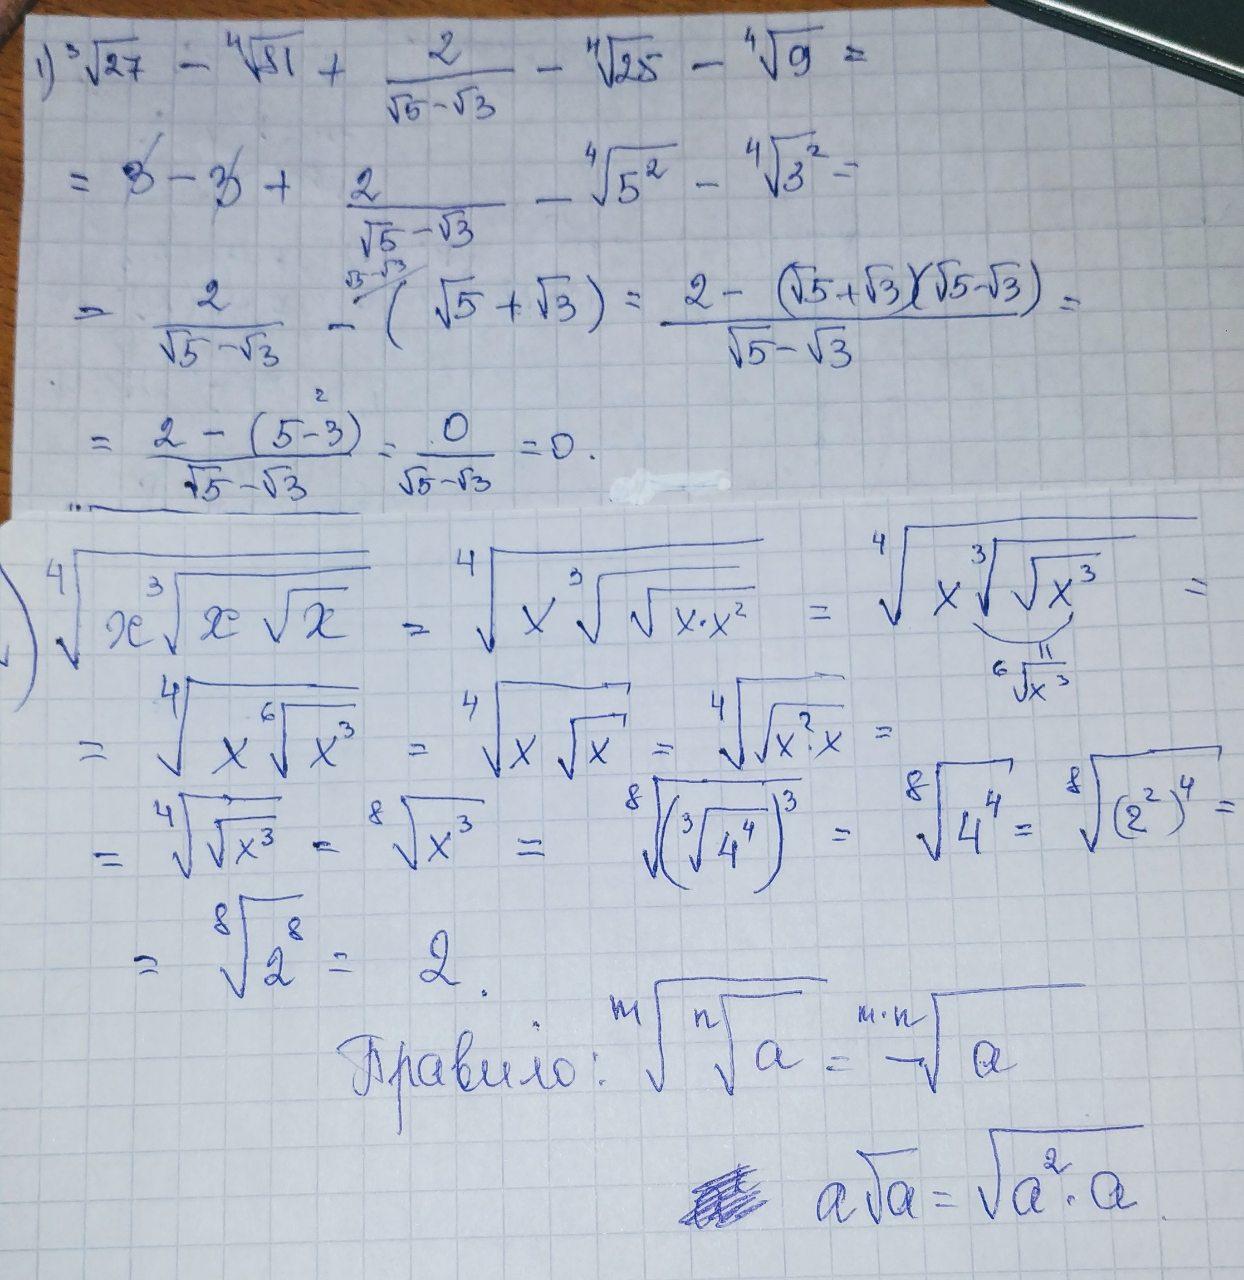 1) ³√27 − ⁴√81 + 2/(√5−√3) − ⁴√25 − ⁴√9 =
= 3 − 3 + 2/(√5−√3) − ⁴√(5²) − ⁴√(3²) =
= 2/(√5−√3) − (√5+√3) = (2 − (√5+√3)(√5−√3))/(√5−√3) =
= (2 − (5−3))/(√5−√3) = 0/(√5−√3) = 0.
) ⁴√(x ³√(x √x)) = ⁴√(x ³√(√(x·x²))) = ⁴√(x ³√(√(x³))) =
⁶√(x³)
= ⁴√(x ⁶√(x³)) = ⁴√(x √x) = ⁴√(√(x²·x)) =
= ⁴√(√(x³)) = ⁸√(x³) = ⁸√((³√(4⁴))³) = ⁸√(4⁴) = ⁸√((2²)⁴) =
= ⁸√(2⁸) = 2.
Правило: ᵐ√(ⁿ√a) = ᵐ·ⁿ√a
a√a = √(a²·a).